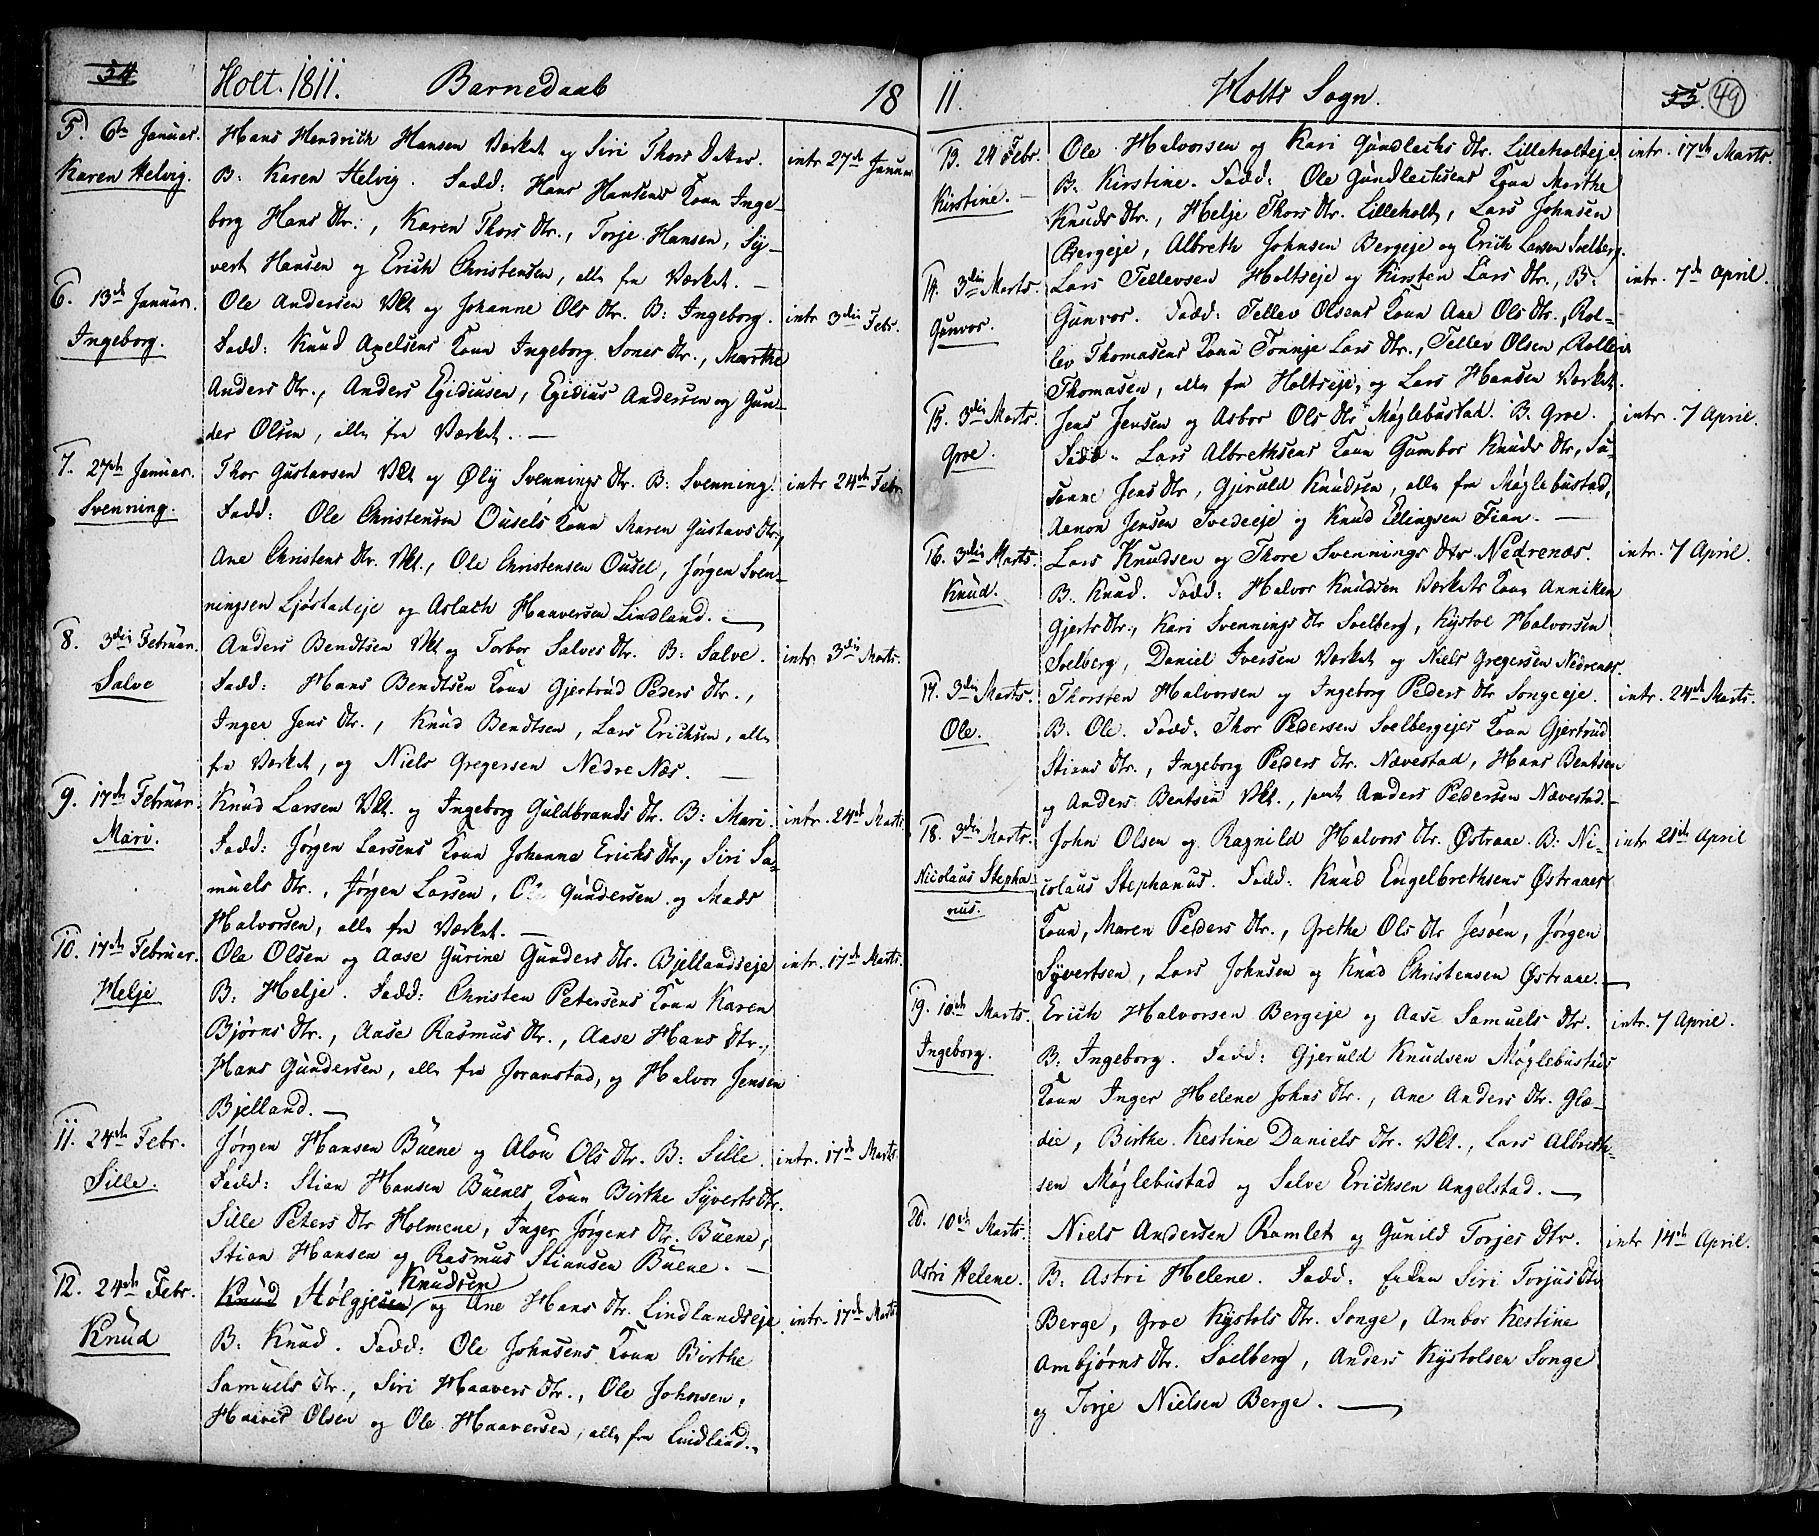 54
Holt. 1811. Barnedaab 18
5. 6te Januar.
Karen Helvig.
Hans Hendrich Hansen Værket og Siri Thors Datter.
B: Karen Helvig. Fadd: Hans Hansens Kone Inge-
borg Hans Dtr:, Karen Thors Dtr., Torje Hansen, Sy-
vert Hansen og Erich Christensen, alle fra Værket. —
intr. 27de Januar
6. 13de Januar.
Ingeborg.
Ole Andersen Vkt og Johanne Ols Dtr. B: Ingeborg.
Fadd: Knud Axelsens Kone Ingeborg Sones Dtr., Marthe
Anders Dtr., Anders Egidiusen, Egidius Andersen og Gun-
der Olsen, alle fra Værket. —
intr 3die Febr.
7. 27de Januar.
Svenning.
Thor Gustavsen Vkt og Øly Svennings Dtr. B: Svenning.
Fadd: Ole Christensen Ousels Kone Maren Gustavs Dtr,
Ane Christens Dtr. Vkt., Ole Christensen Ousel, Jørgen Sven-
ningsen Ljøstadeje og Aslach Haaversen Lindland. —
intr 24de Febr.
8. 3die Februar.
Salve
Anders Bendtsen Vkt og Torbor Salves Dtr. B: Salve.
Fadd: Hans Bendtsen Kone Gjertrud Peders Dtr.,
Inger Jens Dtr., Knud Bendtsen, Lars Erichsen, alle
fra Værket, og Niels Gregersen Nedre Næs. —
intr. 3die Marts.
9. 17de Februar.
Mari.
Knud Larsen Vkt. og Ingeborg Guldbrands Dtr. B: Mari.
Fadd: Jørgen Larsens Kone Johanna Erichs Dtr., Siri Sa-
muels Dtr., Jørgen Larsen, Ole Gundersen og Mads
Halvorsen, alle fra Værket. —
intr. 24de Marts
10. 17de Februar.
Helje
Ole Olsen og Aase Gurine Gunders Dtr. Bjellandseje
B: Helje. Fadd: Christen Petersens Kone Karen
Bjørns Dtr., Aase Rasmus Dtr., Aase Hans Dtr.,
Hans Gundersen, alle fra Joranstad, og Halvor Jensen
Bjelland. —
intr. 17de Marts.
11. 24de Febr.
Sille.
Jørgen Hansen Buene og Alou Ols Dtr. B: Sille.
Fadd: Stian Hansen Buenes Kone Birthe Syverts Dtr.
Sille Peters Dtr Holmene, Inger Jørgens Dtr. Buene,
Stian Hansen og Rasmus Stiansen Buene. —
intr. 17de Marts.
12. 24de Febr.
Knud
Knudsen
Knud Hølgjesen og Ane Hans Dtr. Lindlandseje
B: Knud. Fadd: Ole Johnsens Kone Birthe
Samuels Dtr., Siri Haavers Dtr., Ole Johnsen,
Haaver Olsen og Ole Haaversen, alle fra Lindland.
intr. 17de Marts
11. Holts Sogn. 55. 49
13. 24 Febr.
Kirstine. —
Ole Halvorsen og Kari Gundlechs Dtr. Lilleholteje
B: Kirstine. Fadd: Ole Gundlechsens Kone Marthe
Knuds Dtr., Helje Thors Dtr. Lilleholt, Lars Johnsen
Bergeje, Albreth Johnsen Bergeje og Erich Larsen Svelberg.
intr. 17de Marts.
14. 3die Marts.
Gunvor.
Lars Tellevsen Holtseje og Kirsten Lars Dtr., B:
Gunvor. Fadd: Tellev Olsens Kone Ane Ols Dtr., Rol-
lev Thomasens Kone Tonnje Lars Dtr., Tellev Olsen, Rollev
Thomasen, alle fra Holtseje, og Lars Hansen Værket.
intr. 7de April.
15. 3die Marts.
Groe.
Jens Jensen og Asbor Ols Dtr Møglebustad. B. Groe.
Fadd. Lars Albrethsens Kone Gumbor Knuds Dtr, Su-
sanne Jens Dtr, Gjeruld Knudsen, alle fra Møglebustad,
Aanon Jensen Tvedeeje og Knud Ellingsen Fian. —
intr. 7 April.
16. 3die Marts.
Knud.
Lars Knudsen og Thore Svennings Dtr. Nedrenæs.
B. Knud. Fadd: Halvor Knudsen Værkets Kone Anniken
Gjerts Dtr., Kari Svennings Dtr Svelberg, Kystol Halvorsen
Svelberg, Daniel Iversen Værket og Niels Gregersen Nedrenæs.
intr. 7 April.
17. 3die Marts.
Ole.
Thorsten Halvorsen og Ingeborg Peders Dtr Songeeje.
B. Ole. Fadd: Thor Pedersen Svelbergejes Kone Gjertrud
Stians Dtr., Ingeborg Peders Dtr. Nævestad, Hans Bentsen
og Anders Bentsen Vkt., samt Anders Pedersen Nævestad. —
intr. 24de Marts.
18. 3die Marts.
Nicolaus Stepha
nus.
John Olsen og Ragnild Halvors Dtr. Østraae. B: Ni-
colaus Stephanus. Fadd: Knud Engelbrethsens Østraaes
Kone, Maren Peders Dtr., Grethe Ols Dtr Jesøen, Jørgen
Syvertsen, Lars Johnsen og Knud Christensen Østraae. —
intr 21de April
19. 10de Marts.
Ingeborg.
Erich Halvorsen Bergeje og Aase Samuels Dtr.
B: Ingeborg. Fadd: Gjeruld Knudsen Møglebustads
Kone Inger Helene Johns Dtr., Ane Anders Dtr. Glæ-
die, Birthe Kestine Daniels Dtr. Vkt., Lars Albreth-
sen Møglebustad og Salve Erichsen Angelstad. —
intr. 7 April.
20. 10de Marts.
Astri Helene.
Niels Andersen Ramlet og Gunild Torjes Dtr.
B: Astri Helene. Fadd: Enken Siri Torjus Dtr
Berge, Groe Kystols Dtr. Songe, Ambor Kestine
Ambjørns Dtr. Svelberg, Anders Kystolsen Songe
og Torje Nielsen Berge. —
intr 14de April.